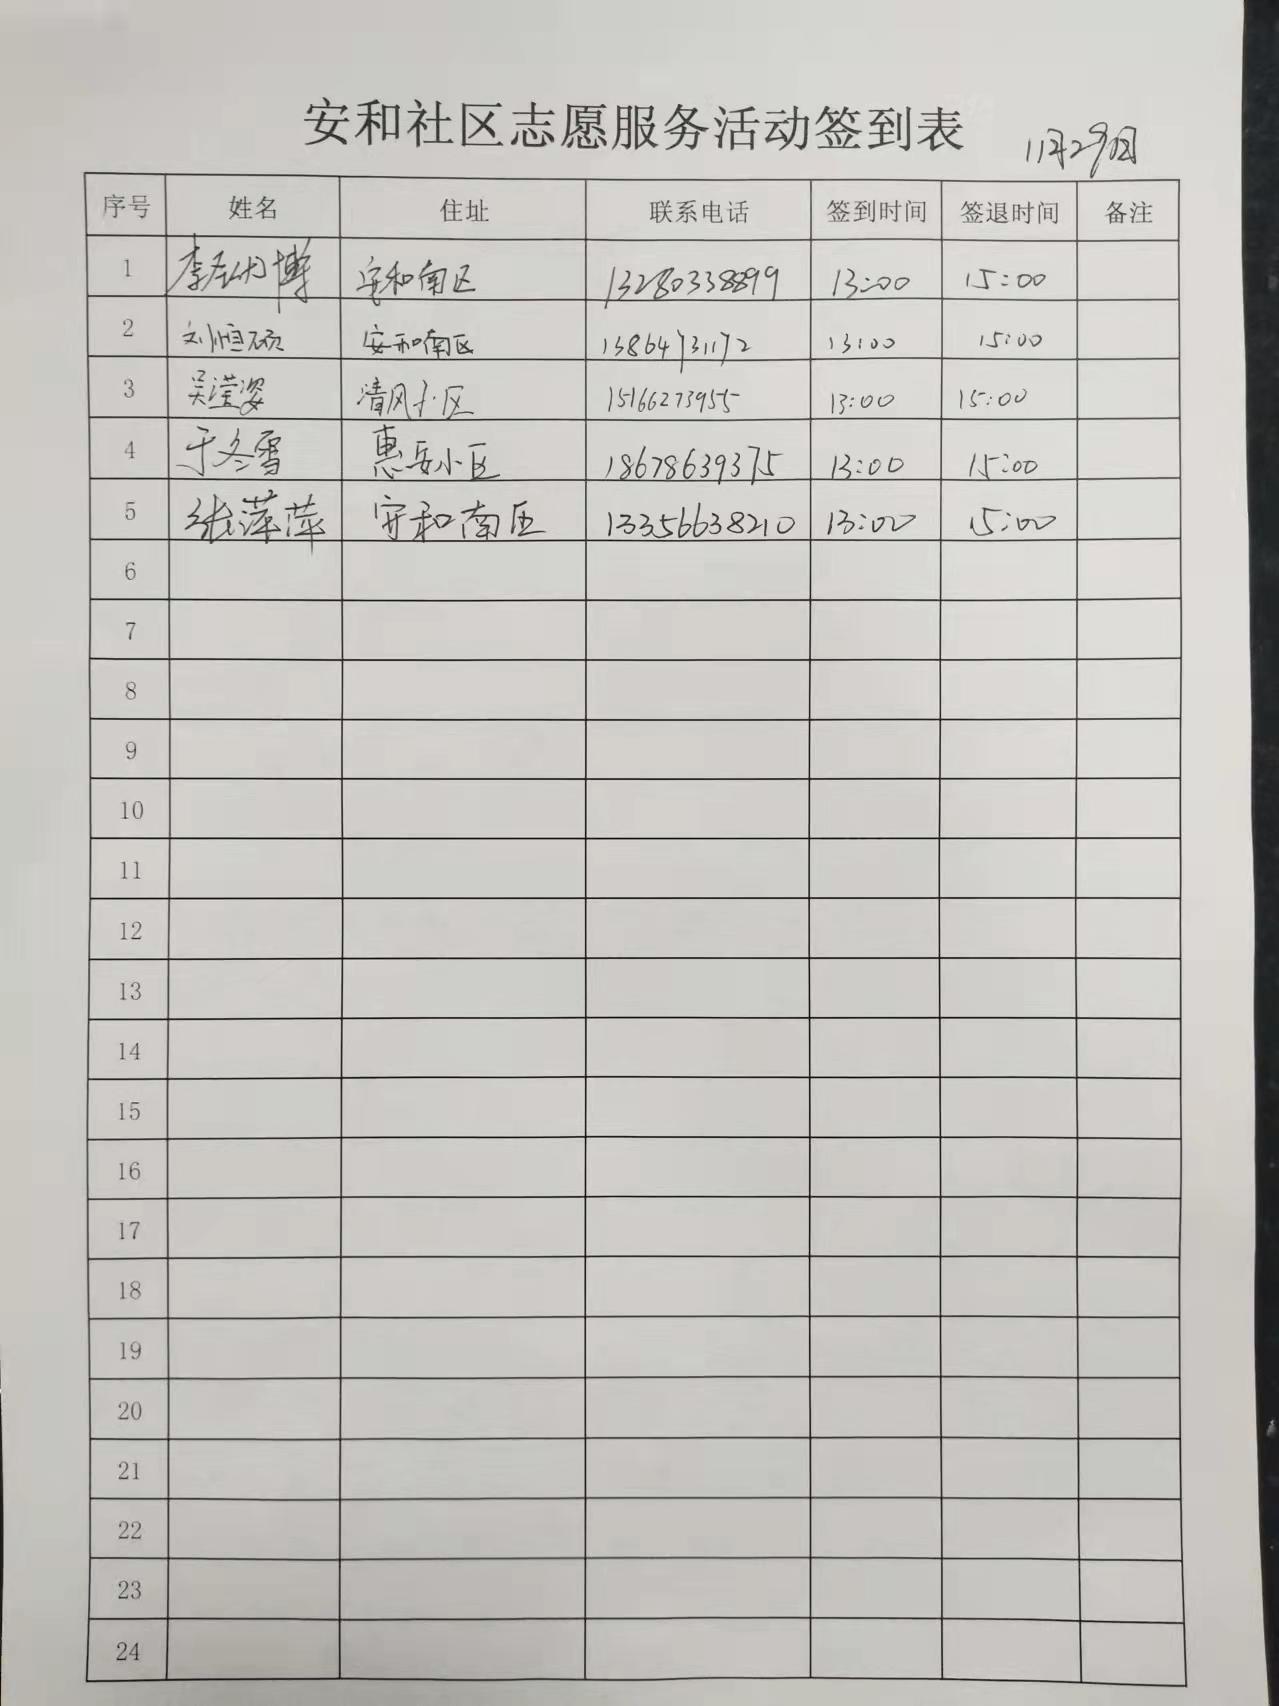 安和社区志愿服务活动签到表 11月29日
序号 姓名 住址 联系电话 签到时间 签退时间 备注
1 李 博 安和南区 13280338899 13:00 15:00
2 刘恒硕 安和南区 13864731172 13:00 15:00
3 吴滢姿 清风小区 15166273955 13:00 15:00
4 于冬雪 惠安小区 18678639375 13:00 15:00
5 张萍萍 安和南区 13356638210 13:00 15:00
6
7
8
9
10
11
12
13
14
15
16
17
18
19
20
21
22
23
24